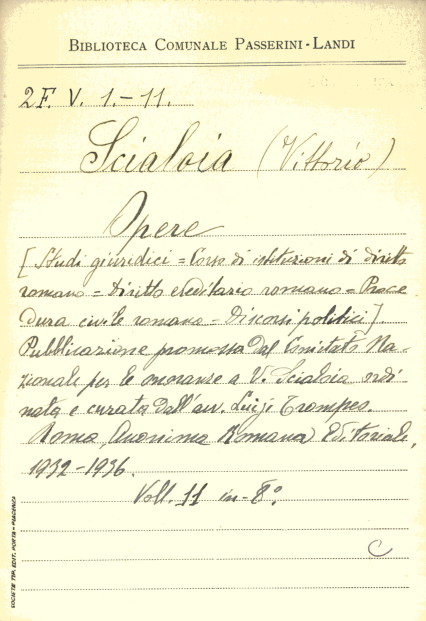 BIBLIOTECA COMUNALE PASSERINI-LANDI
2 F. V. 1.-11.
Scialoia (Vittorio)
Opere
[Studi giuridici = Corso di istituzioni di diritto
romano = Diritto ereditario romano = Proce
dura civile romana - Discorsi politici].
Pubblicazione promossa dal Comitato Na-
zionale per le onoranze a V. Scialoia ordi
nata e curata dall'avv. Luigi Trompeo.
Roma, Anonima Romana Editoriale,
1932-1936.
Voll. 11 in-8°.
C
SOCIETÀ TIP. EDIT. PORTA - PIACENZA